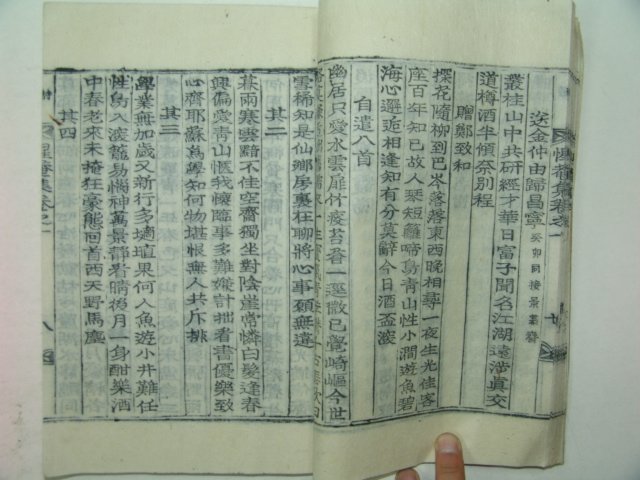 送金仲由歸昌寧
叢桂山中共研經才華日富子聞名江湖遠
眞交
道樽酒半傾奈別程
贈鄭致和
探花隨柳到巴岑落落東西晚相尋一夜生光佳客
座百年知已故人
短
啼
靑山性小澗遊魚碧
海心邂逅相逢知有分莫辭今日酒盃
自遣八首
幽居只愛水雲扉竹
苔
一逕微已覺崎嶇今世
雲稀知是仙鄕
裏在聊將心事頚無違
其二
暮雨寒雲黯不佳空齋獨坐對陰崖常憐白髮逢春
興偏愛靑山愜我懷隨事多難嫌計拙著書優樂致
心齋耶蘇爲學知何物堪恨無人共斥排
其三
學業無加歲又新行多
埴果何人魚遊小井難任
性鳥入
籠易惱神萬景靜看晴後月一身酣樂酒
中春老來未掩狂豪態回首西天野馬塵
其四
八